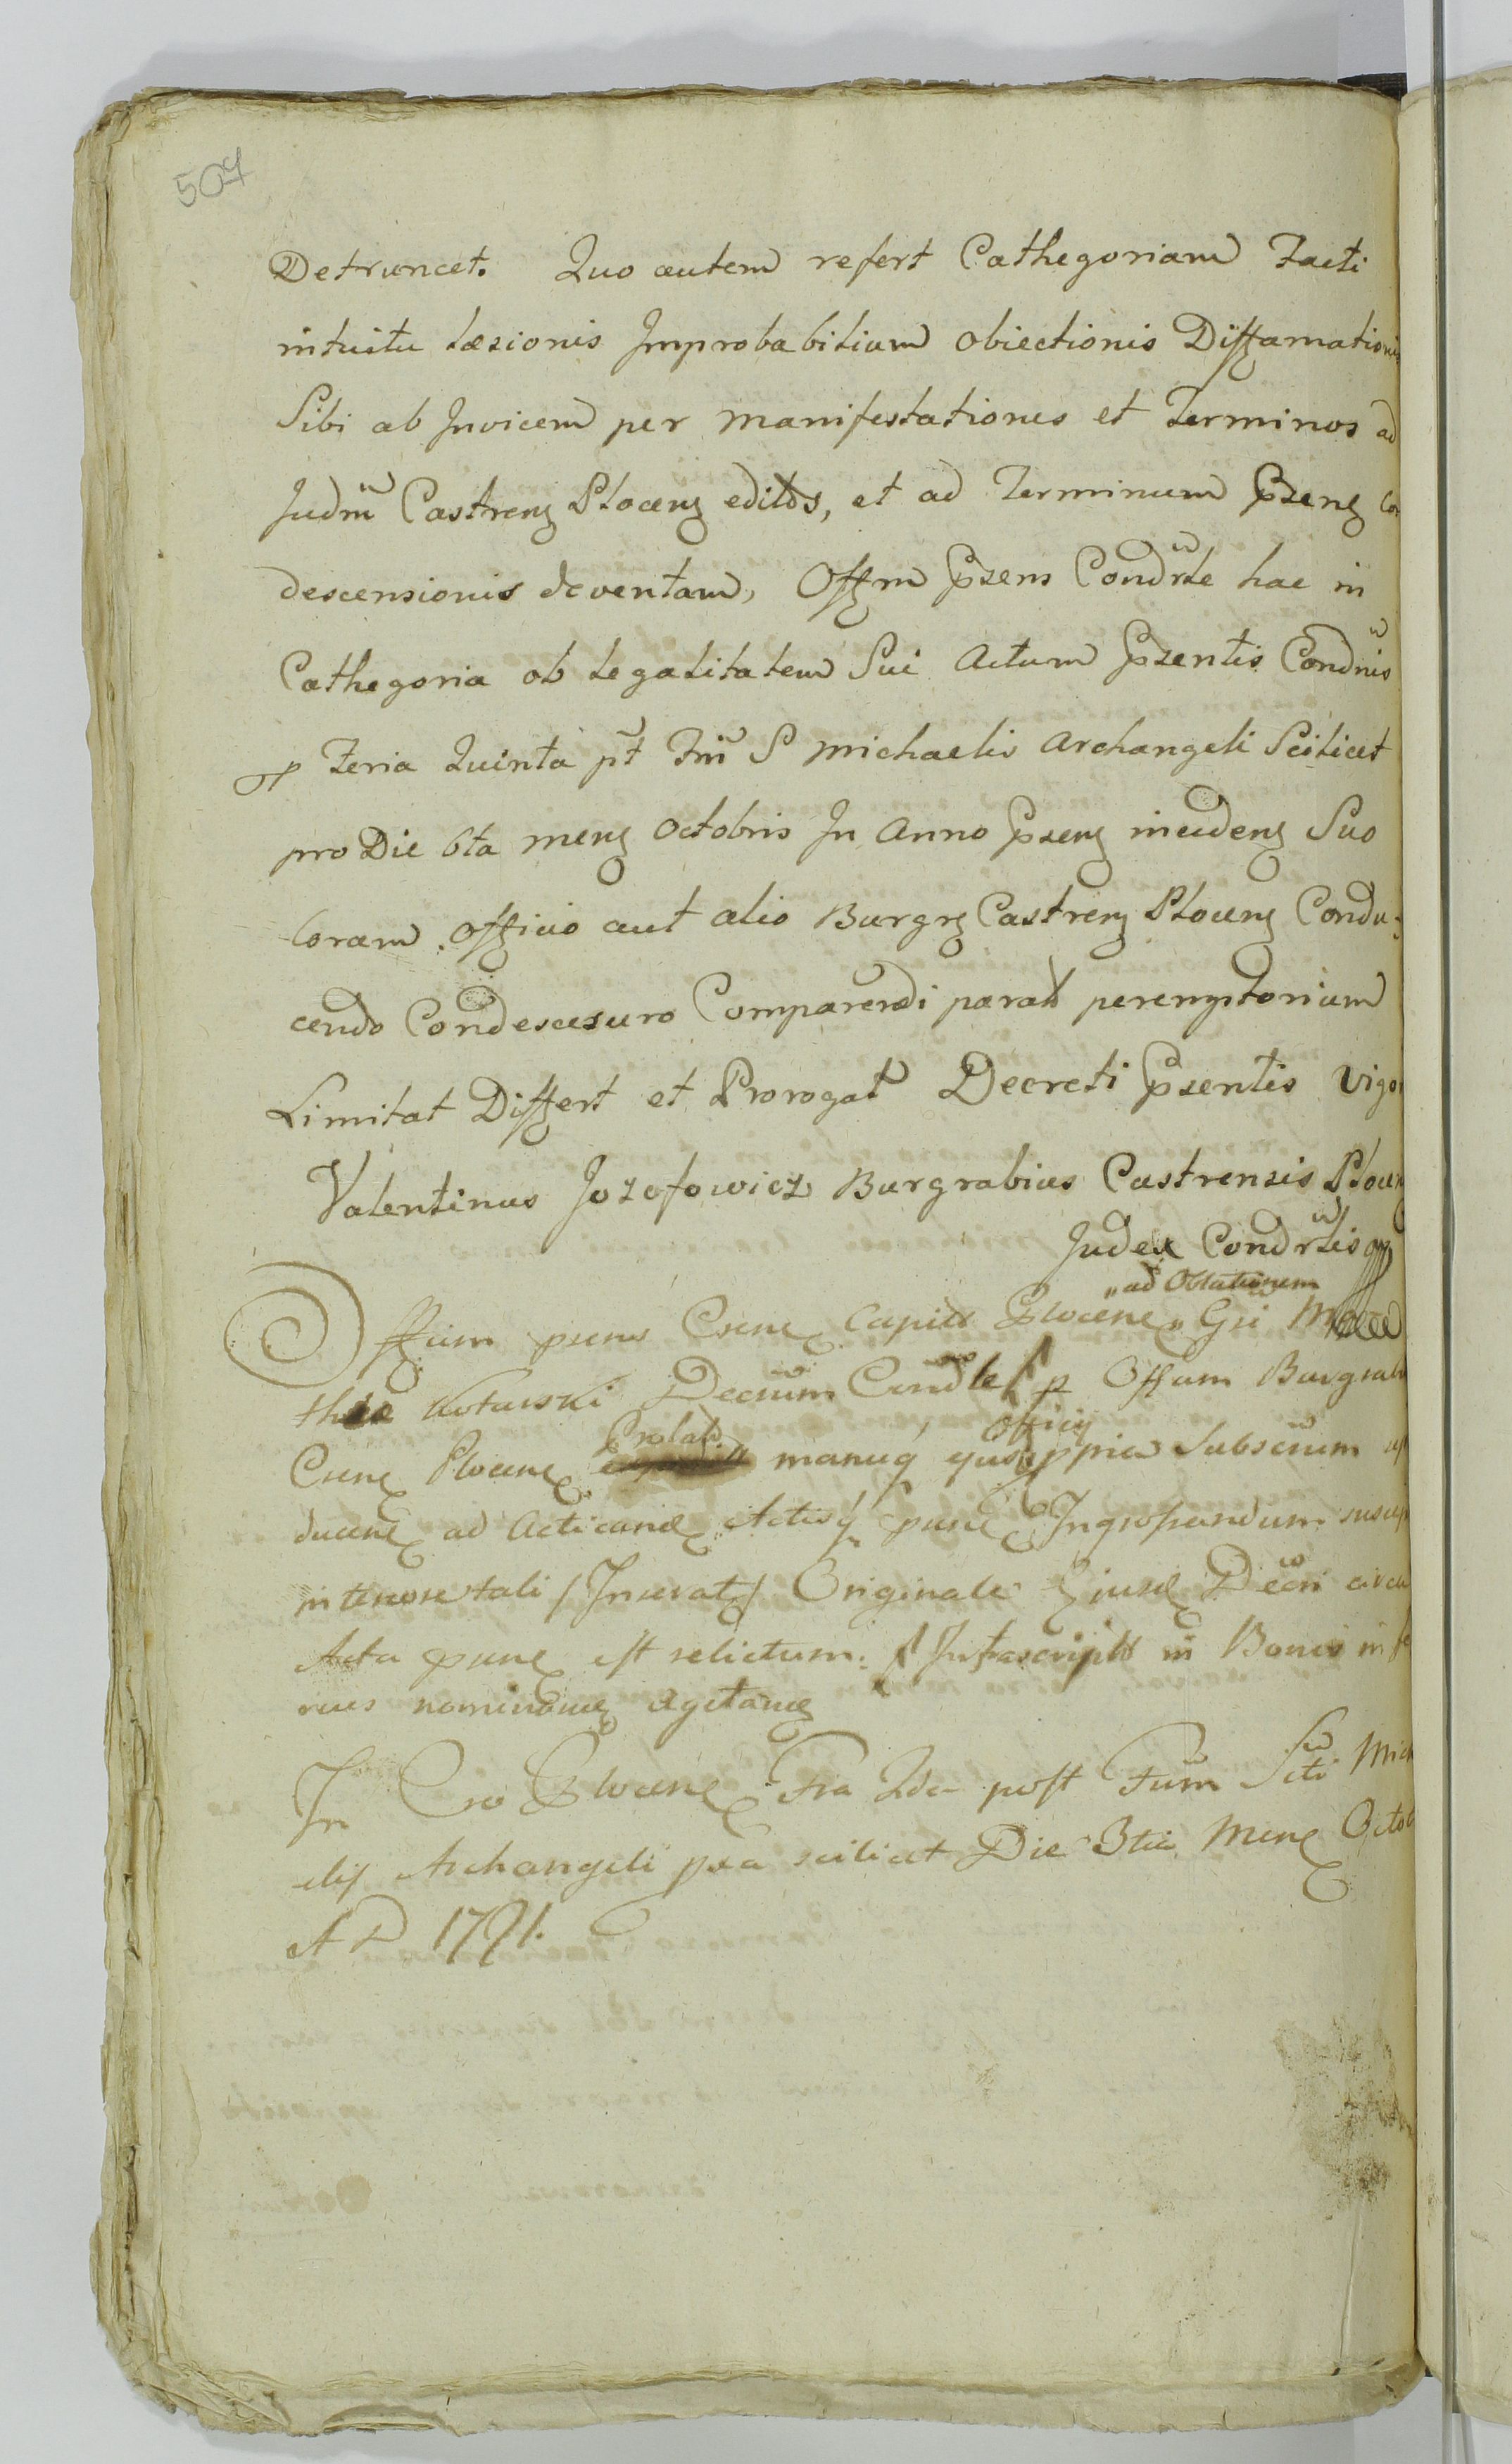 507
Detruncet. Quo autem refert Cathegoriam Facti
intuitu Læsionis Improbabilium obiectionis Diffamationis
Sibi ab Invicem per manifestationes et Terminos ad
Judm Castrens Plocens editos, et ad Terminum Pzens Con
descensionis deventam, Offm Pzens Condrtle hac in
Cathegoria ob Legalitatem Sui Actum Pzentis Condnis
Feria Quinta pt Ftm S Michaelis Archangeli Scilicet
pro Die 6ta mens Octobris In Anno Pzens incidens Suo
Coram Officio aut alio Burgrs Castrens Plocens Condu
cendo Condescesuro Comparendi parat peremptorium
Limitat Differt et Prorogat Decreti Pzentis Vigo
Valentinus Jozefowicz Burgrabius Castrensis Plocens
Judex Condrtlis
„ad Oblationem
Offium psens Csene Capit Plocene„ Gsi
Kotarski Decrum Condle p Offium Burgrab
Prolat Officij
Csene Plocene manuq ejus ppria Subscrum
ducene ad Acticand Actisq psene Ingrossandum suscep
in tenore tali / Inserat / Originale Ejusd Decri circa
Acta psene est relictum. Infrascript in Bonis infe
rius nominand Agitand
In Cro Plocene Fra 2da post Ftum Scti Mich
elis Archangeli pxa scilicet Die 3tia Mens Octob
A D 1791.